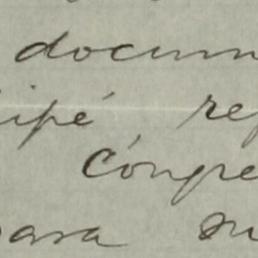 docum
cipé rep
cónpre
para su